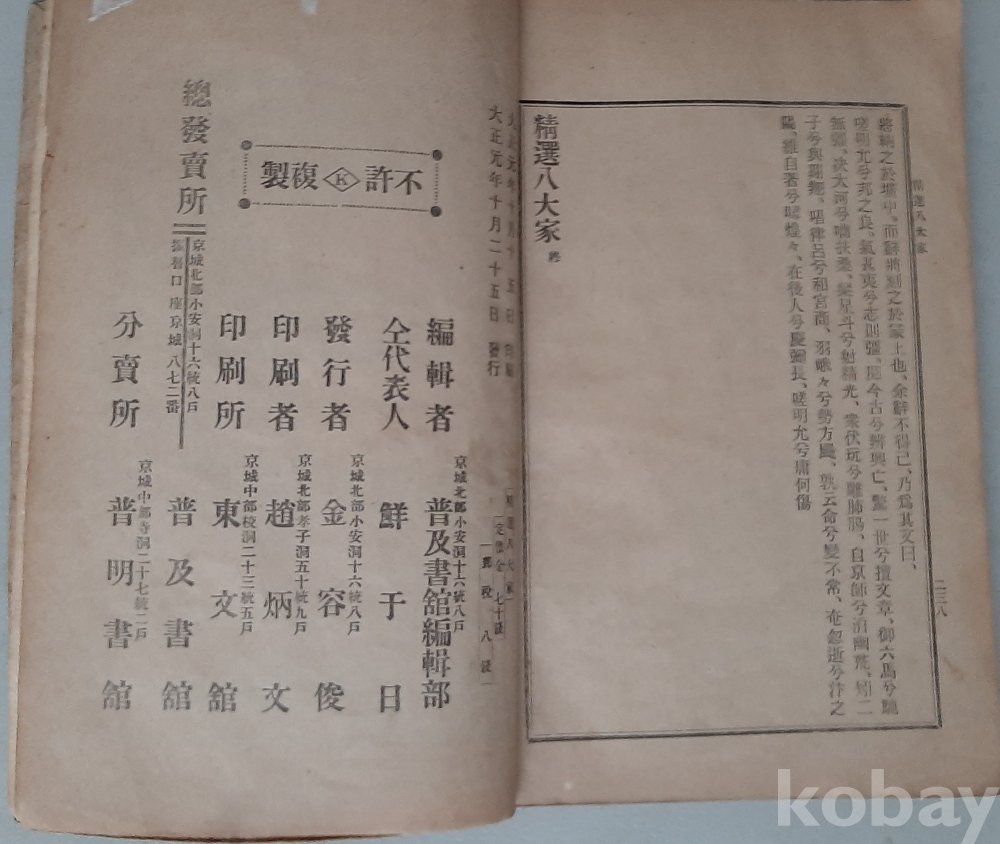 精選八大家
二三八
將銘之於壙中、而辭將刻之於墓上也、余辭不得已、乃爲其文曰、
嗟明允兮邦之良、氣甚夷兮志則彊、閱今古兮辨興亡、驚一世兮擅文章、御六馬兮馳
無疆、决大河兮嚙扶桑、粲星斗兮射精光、衆伏玩兮雕肺腸、自京師兮洎幽荒、矧二
子兮與翶翔、唱律呂兮和宮商、羽峩々兮勢方颺、孰云命兮變不常、奄忽逝兮汴之
陽、維自著兮暐煌々、在後人兮慶彌長、嗟明允兮庸何傷
精選八大家 終
大正元年十月十五日 印刷
大正元年十月二十五日 發行
精選八大家
定價金 七十錢
郵稅 八錢
不許Ⓚ複製
編輯者 京城北部小安洞十六統八戶 普及書舘編輯部
仝代表人 鮮于日
發行者 京城北部小安洞十六統八戶 金容俊
印刷者 京城北部孝子洞五十統九戶 趙炳文
印刷所 京城中部校洞二十三統五戶 東文舘
總發賣所 京城北部小安洞十六統八戶 振替口座京城八七二番 普及書舘
分賣所 京城中部寺洞二十七統二戶 普明書舘
kobay